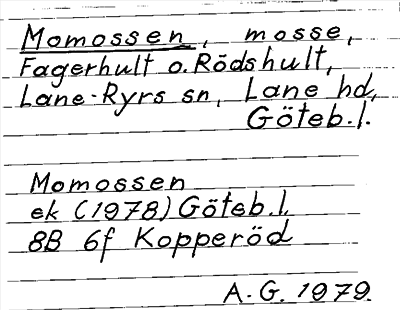 Momossen, mosse,
Fagerhult o. Rödshult,
Lane-Ryrs sn, Lane hd,
Göteb.l.
Momossen
ek (1978) Göteb.l.
8B 6f Kopperöd
A.G. 1979.